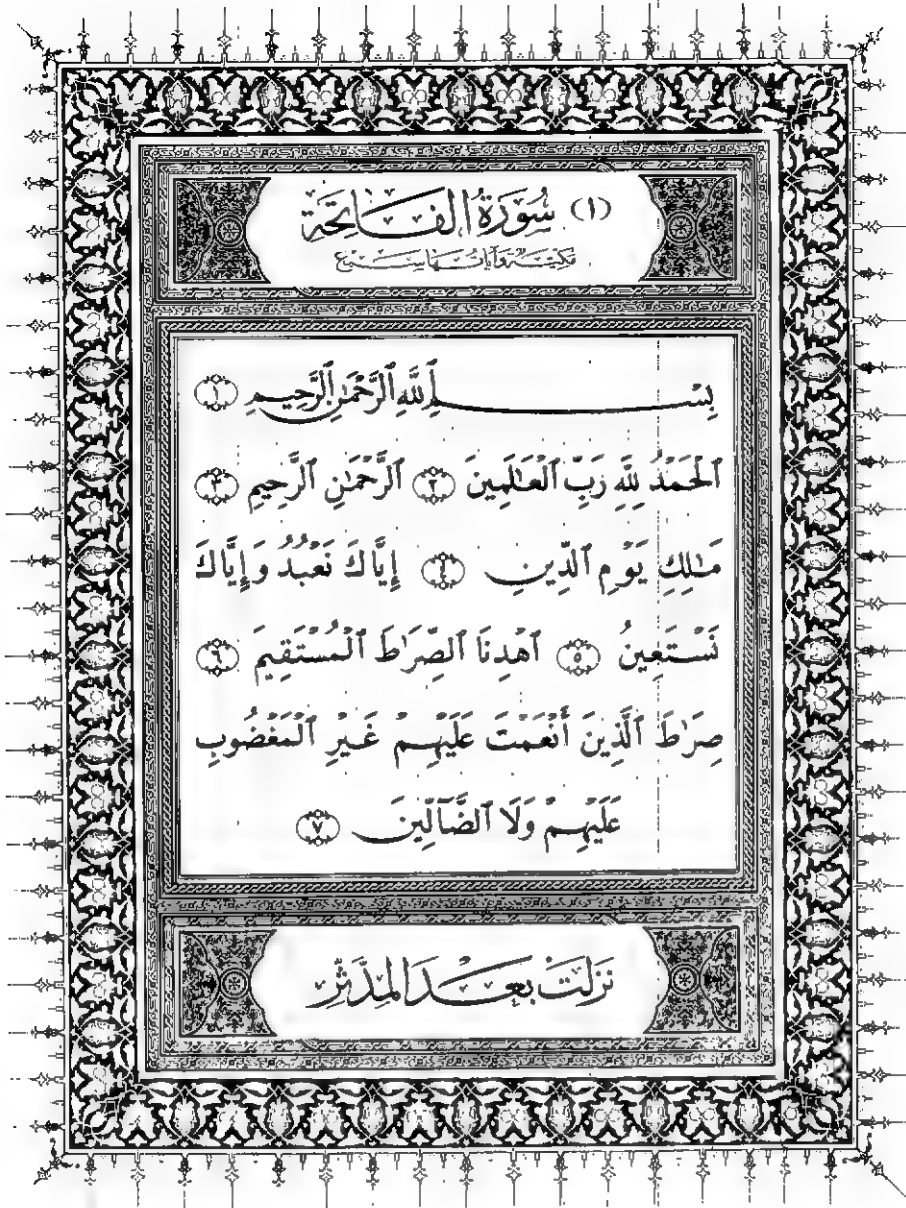 (١) سُورَةُ الفَاتِحَة
مَكيَّة وَآيَاتُهَا سَبْع
بِسْمِ ٱللَّهِ ٱلرَّحْمَٰنِ ٱلرَّحِيمِ ١
ٱلْحَمْدُ لِلَّهِ رَبِّ ٱلْعَٰلَمِينَ ٢ ٱلرَّحْمَٰنِ ٱلرَّحِيمِ ٣
مَٰلِكِ يَوْمِ ٱلدِّينِ ٤ إِيَّاكَ نَعْبُدُ وَإِيَّاكَ
نَسْتَعِينُ ٥ ٱهْدِنَا ٱلصِّرَٰطَ ٱلْمُسْتَقِيمَ ٦
صِرَٰطَ ٱلَّذِينَ أَنْعَمْتَ عَلَيْهِمْ غَيْرِ ٱلْمَغْضُوبِ
عَلَيْهِمْ وَلَا ٱلضَّآلِّينَ ٧
نَزَلَتْ بَعْدَ المدَّثِّر